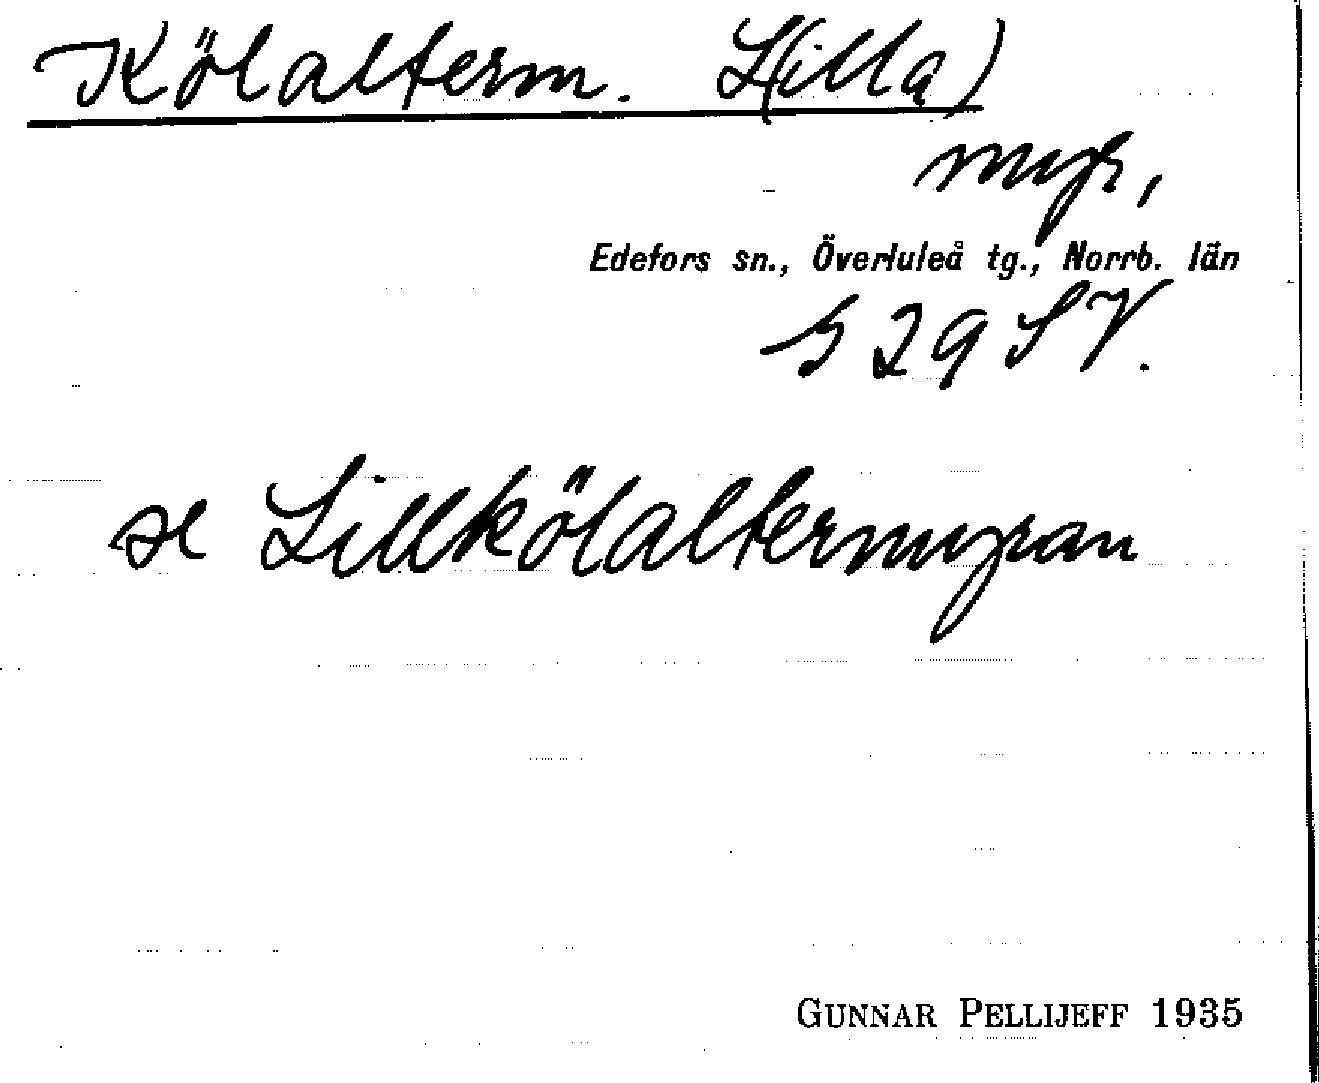 Kölalterm. L(illa)
myr,
Edefors sn., Överluleå tg., Norrb. län
S 29 SV.
se Lillkölaltermyran
GUNNAR PELLIJEFF 1935